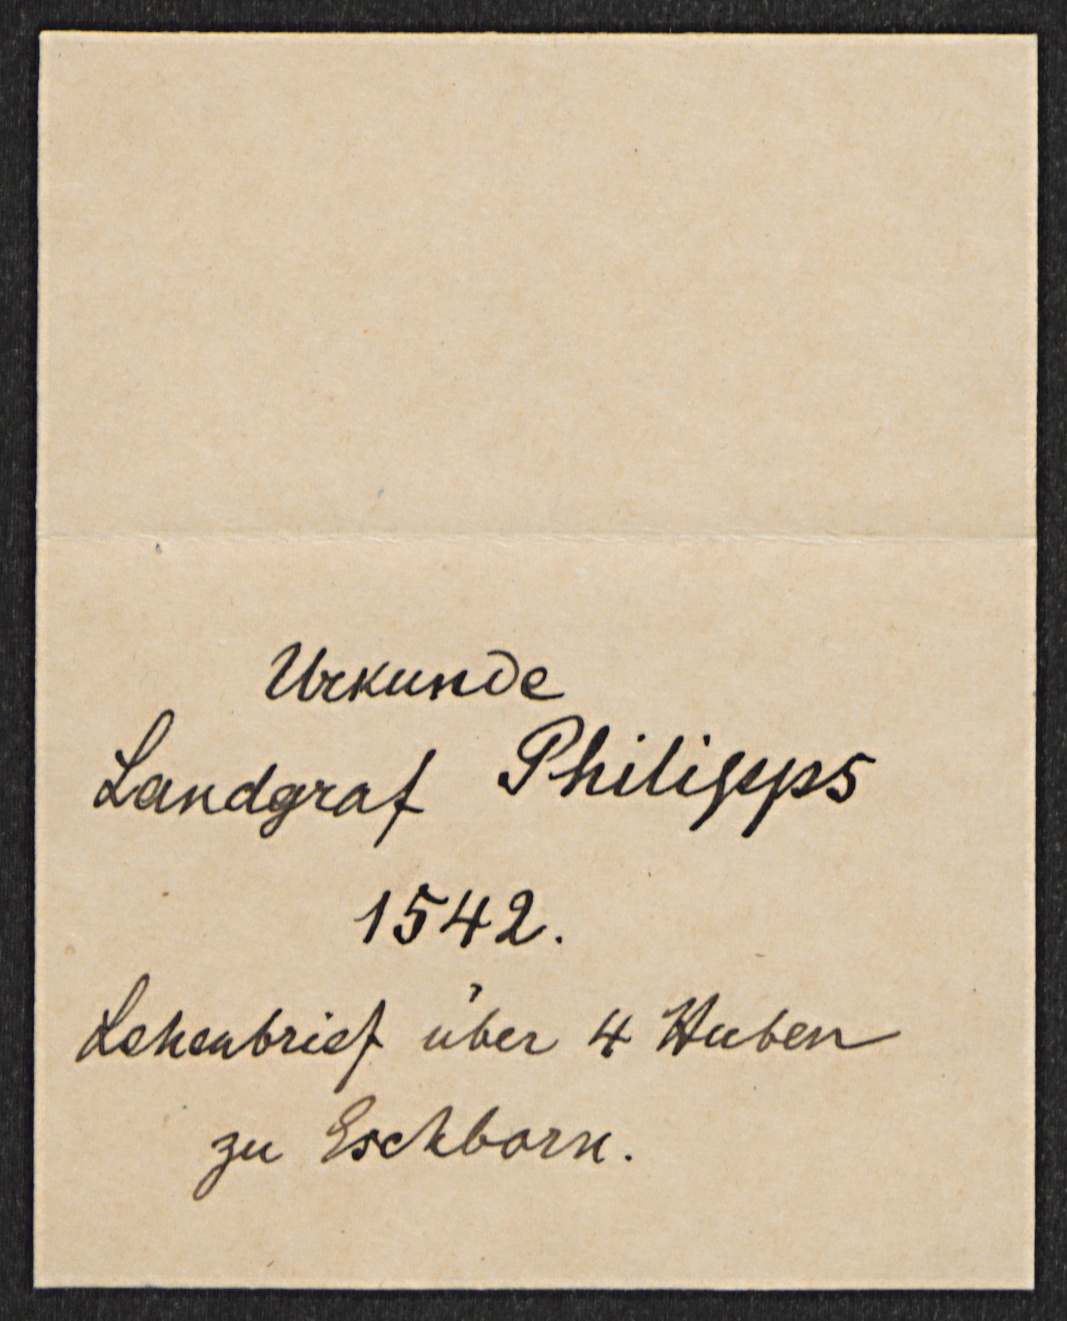 Urkunde
Landgraf Philipps
1542.
Lehenbrief über 4 Huben
zu Eschborn.